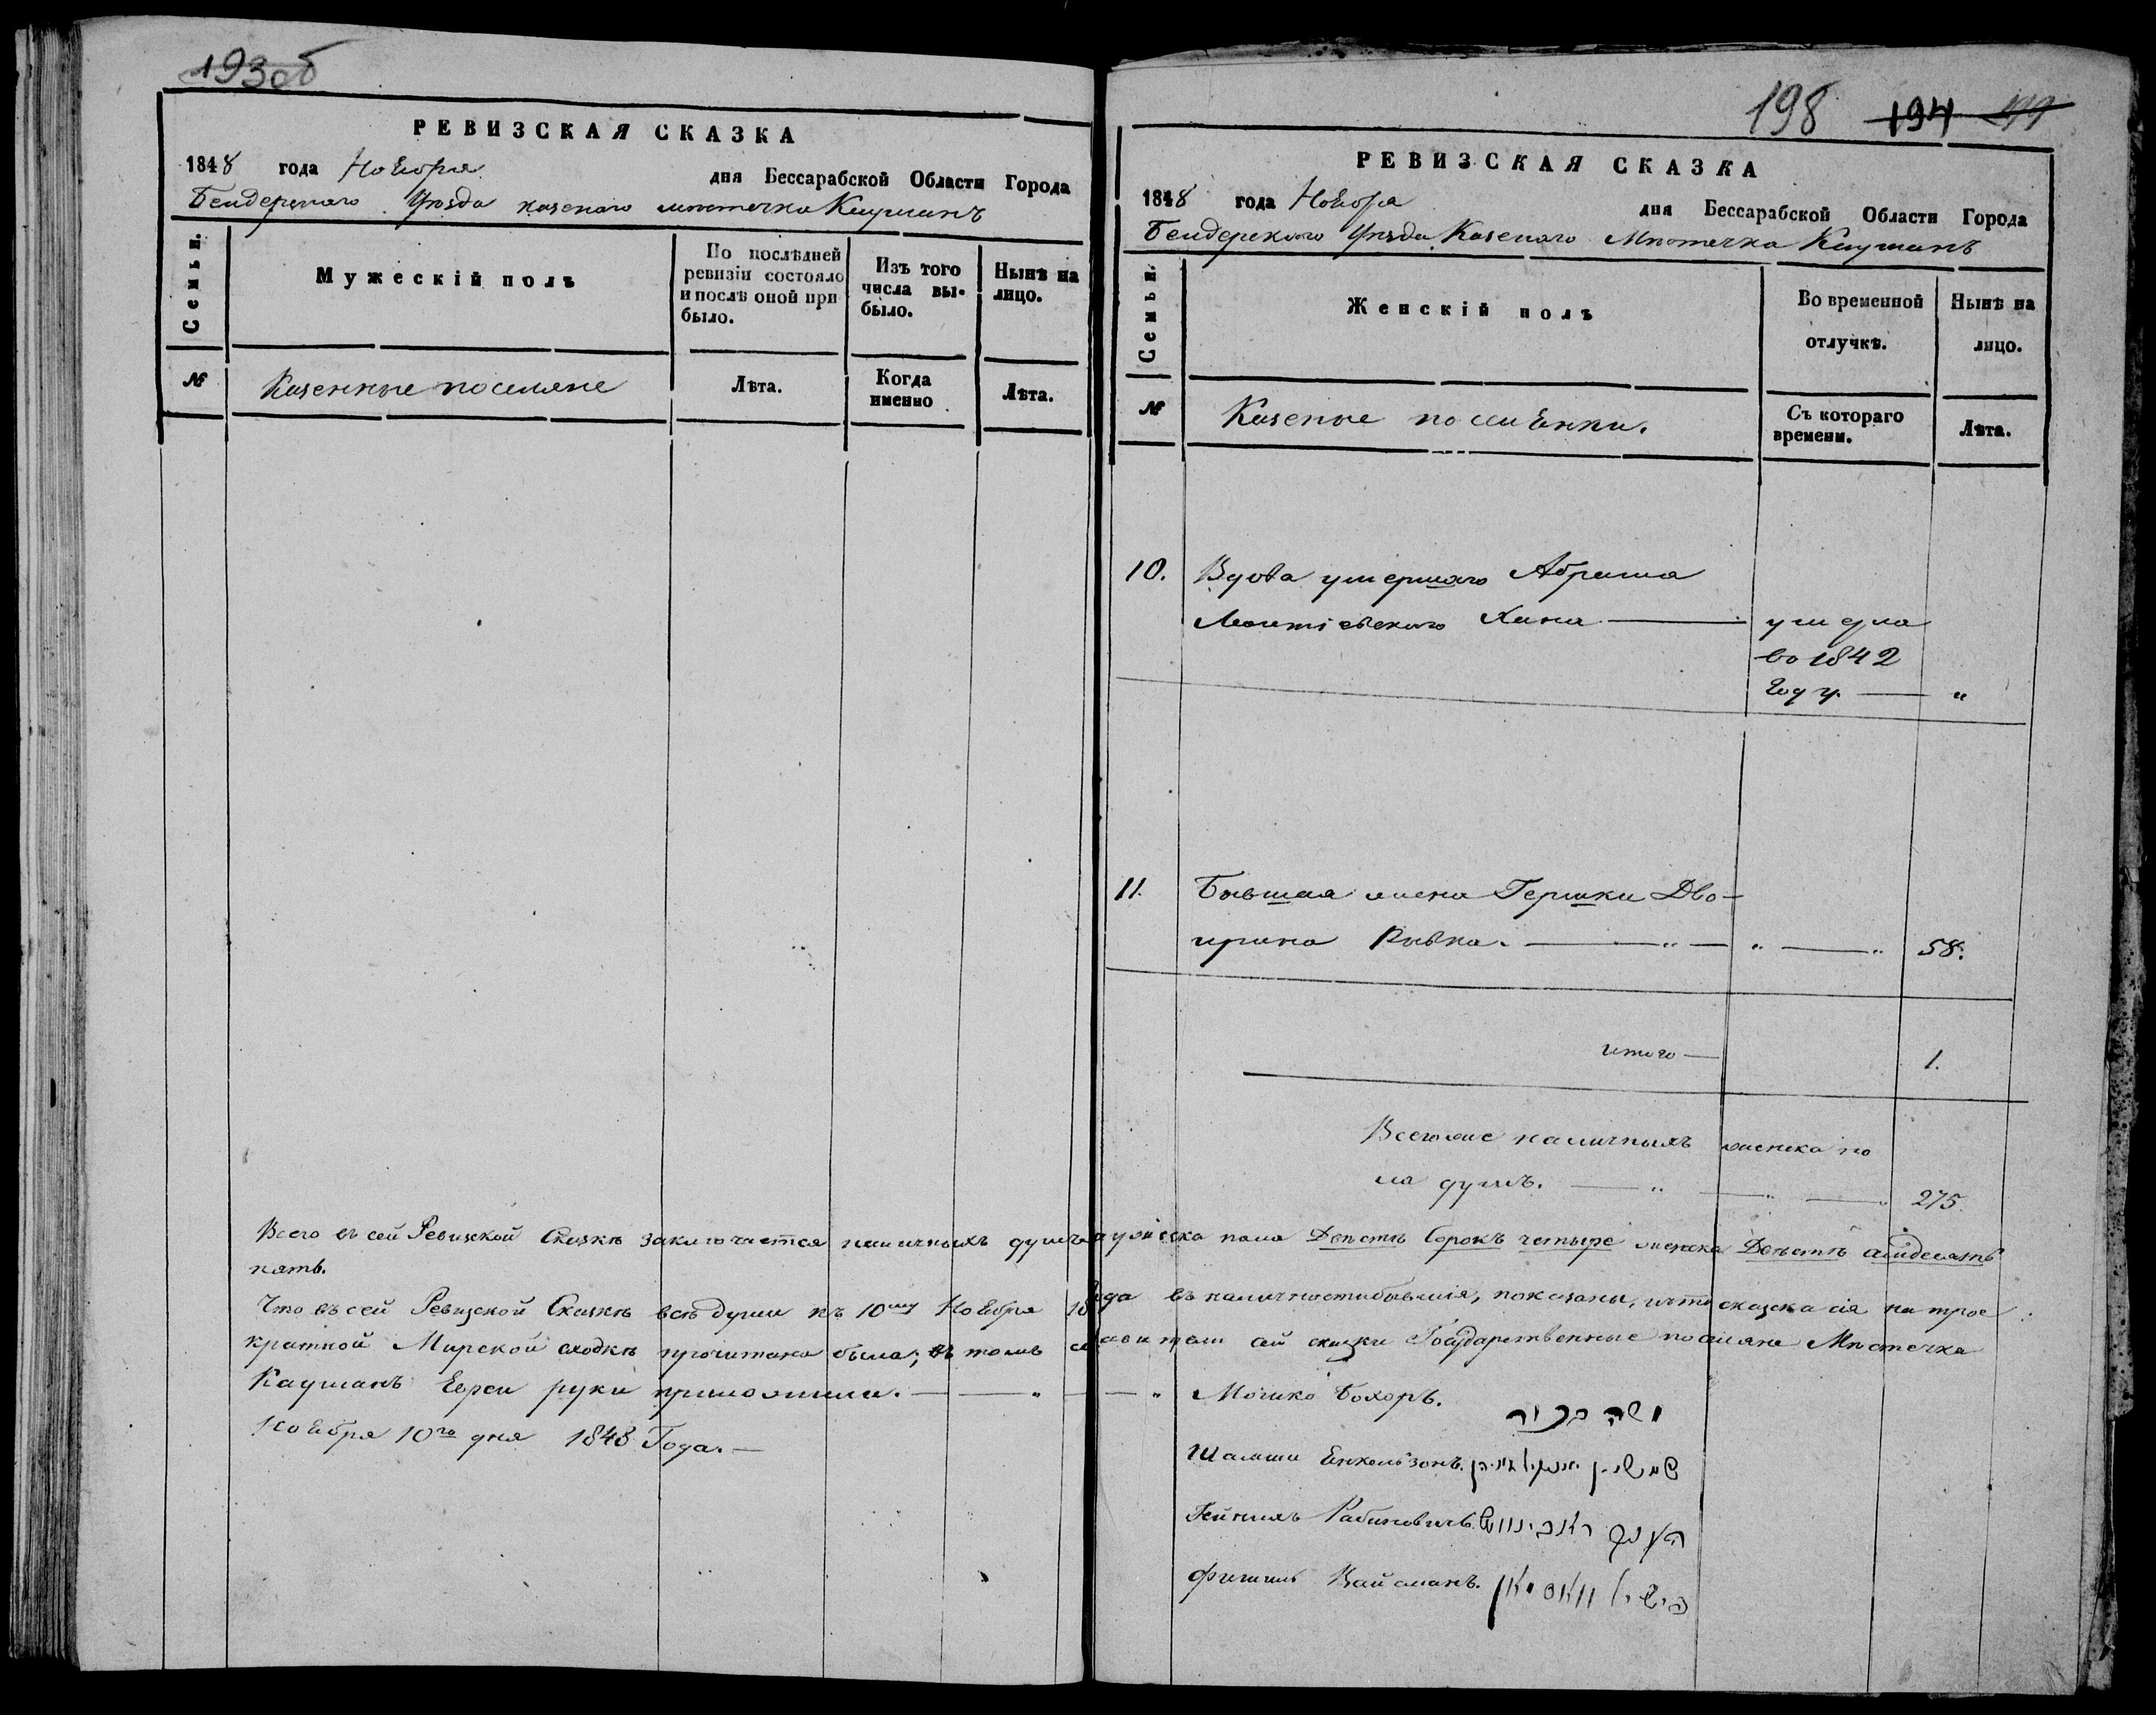 193об
РЕВИЗСКАЯ СКАЗКА
1848 года Ноября дня Бессарабской Области Города
Бендерскаго Уѣзда казенаго мѣстечка Каушанъ
Семьи.
Мужескій полъ
По послѣдней
ревизіи состояло
и послѣ оной при
было.
Изъ того
числа вы-
было.
Нынѣ на
лицо.
№
Казенные поселяне
Лѣта.
Когда
именно
Лѣта.
198 194
РЕВИЗСКАЯ СКАЗКА
1848 года Ноября дня Бессарабской Области Города
Бендерского Уѣзда Казенаго Мѣстечка Каушанъ
Семьи.
Женскій полъ
Во временной
отлучкѣ.
Нынѣ на
лицо.
№
Казеные поселенки.
Съ котораго
времени.
Лѣта.
10. Вдова умершаго Абрама
Хана — умерла
во 1842
году. — "
11. Бывшая жена Гершки Дво-
ирина Рывка. — " — " — " 58.
итого — 1.
Всего же наличныхъ женска по
ла душъ. — " — " — " 275.
Всего въ сей Ревизкой Сказкѣ заключается наличныхъ душъ мужеска пола Двѣстѣ Сорокъ четыре женска Двѣстѣ семдесятъ
пять.
Что въ сей Ревизской Сказкѣ всѣ души къ 10му Ноября 18 года въ наличности бывшія, показаны, и что сказка сія на трое
кратной Мирской сходкѣ прочитана была; въ томъ составители сей сказки Государственные поселяне Мѣстечка
Каушанъ Евреи руки приложили. — " — " Мошко Бохоръ.
משה בכור
Ноября 10го дня 1848 Года. —
Шамши Енкельзонъ. שמשין יענקילזון
Гейнихъ Рабиновичъ. העניך ראבינוויטש
Фишиль Вайсманъ. פישיל ווייסמאן